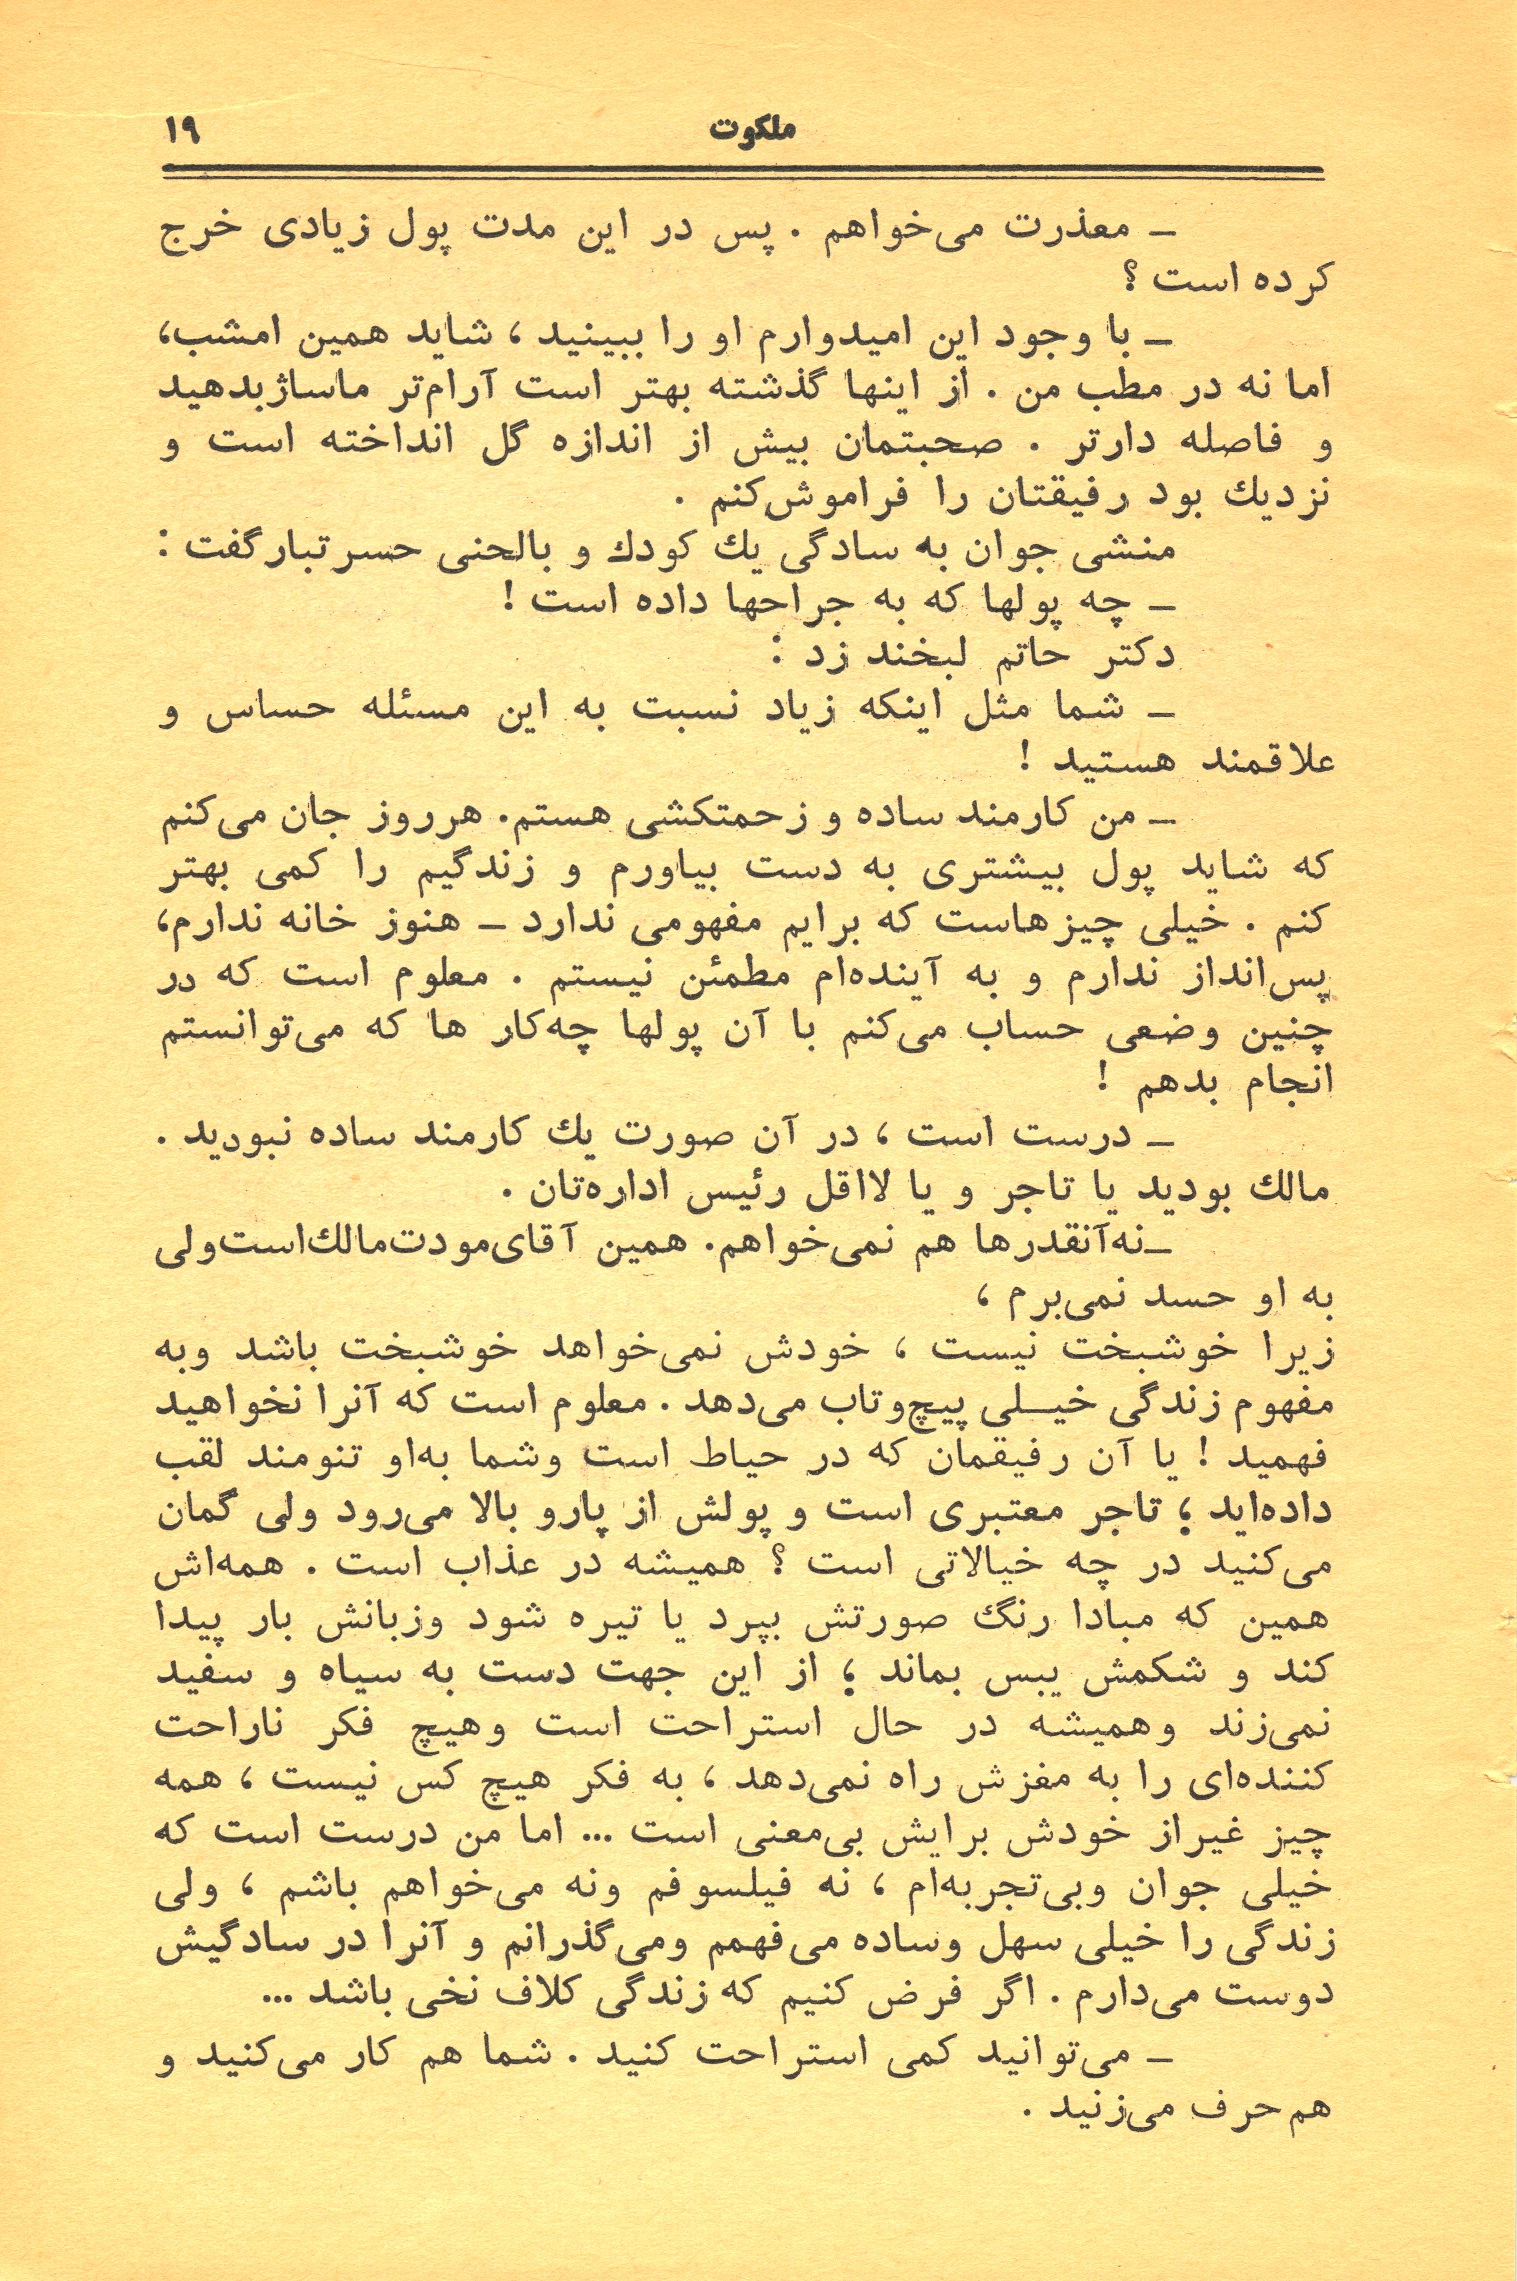 ملکوت ۱۹
ـ معذرت می‌خواهم . پس در این مدت پول زیادی خرج
کرده است ؟
ـ با وجود این امیدوارم او را ببینید ، شاید همین امشب،
اما نه در مطب من . از اینها گذشته بهتر است آرام‌تر ماساژ بدهید
و فاصله دارتر . صحبتمان بیش از اندازه گل انداخته است و
نزدیك بود رفیقتان را فراموش‌کنم .
منشی جوان به سادگی یك کودك و بالحنی حسرتبار گفت :
ـ چه پولها که به جراحها داده است !
دکتر حاتم لبخند زد :
ـ شما مثل اینکه زیاد نسبت به این مسئله حساس و
علاقمند هستید !
ـ من کارمند ساده و زحمتکشی هستم. هرروز جان می‌کنم
که شاید پول بیشتری به دست بیاورم و زندگیم را کمی بهتر
کنم . خیلی چیزهاست که برایم مفهومی ندارد ـ هنوز خانه ندارم،
پس‌انداز ندارم و به آینده‌ام مطمئن نیستم . معلوم است که در
چنین وضعی حساب می‌کنم با آن پولها چه‌کار ها که می‌توانستم
انجام بدهم !
ـ درست است ، در آن صورت یك کارمند ساده نبودید .
مالك بودید یا تاجر و یا لااقل رئیس اداره‌تان .
ـ نه‌آنقدرها هم نمی‌خواهم. همین آقای‌مودت‌مالك‌است‌ولی
به او حسد نمی‌برم ،
زیرا خوشبخت نیست ، خودش نمی‌خواهد خوشبخت باشد وبه
مفهوم زندگی خیلی پیچ‌وتاب می‌دهد . معلوم است که آنرا نخواهید
فهمید ! یا آن رفیقمان که در حیاط است وشما به‌او تنومند لقب
داده‌اید ؛ تاجر معتبری است و پولش از پارو بالا می‌رود ولی گمان
می‌کنید در چه خیالاتی است ؟ همیشه در عذاب است . همه‌اش
همین که مبادا رنگ صورتش بپرد یا تیره شود وزبانش بار پیدا
کند و شکمش یبس بماند ؛ از این جهت دست به سیاه و سفید
نمی‌زند وهمیشه در حال استراحت است وهیچ فکر ناراحت
کننده‌ای را به مغزش راه نمی‌دهد ، به فکر هیچ کس نیست ، همه
چیز غیراز خودش برایش بی‌معنی است ... اما من درست است که
خیلی جوان وبی‌تجربه‌ام ، نه فیلسوفم ونه می‌خواهم باشم ، ولی
زندگی را خیلی سهل وساده می‌فهمم ومی‌گذرانم و آنرا در سادگیش
دوست می‌دارم . اگر فرض کنیم که زندگی کلاف نخی باشد ...
ـ می‌توانید کمی استراحت کنید . شما هم کار می‌کنید و
هم حرف می‌زنید .